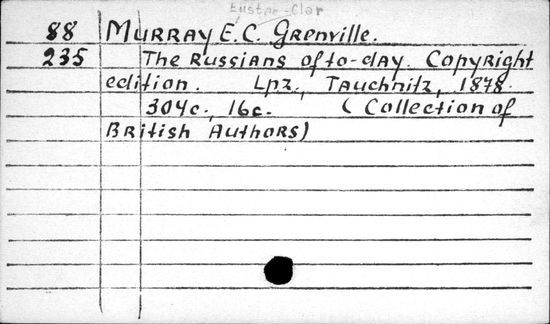 Eustace-Clar
88 MURRAY E.C. Grenville.
235 The Russians of to-day. Copyright
edition. Lpz., Tauchnitz, 1878.
304c., 16c. (Collection of
British Authors)